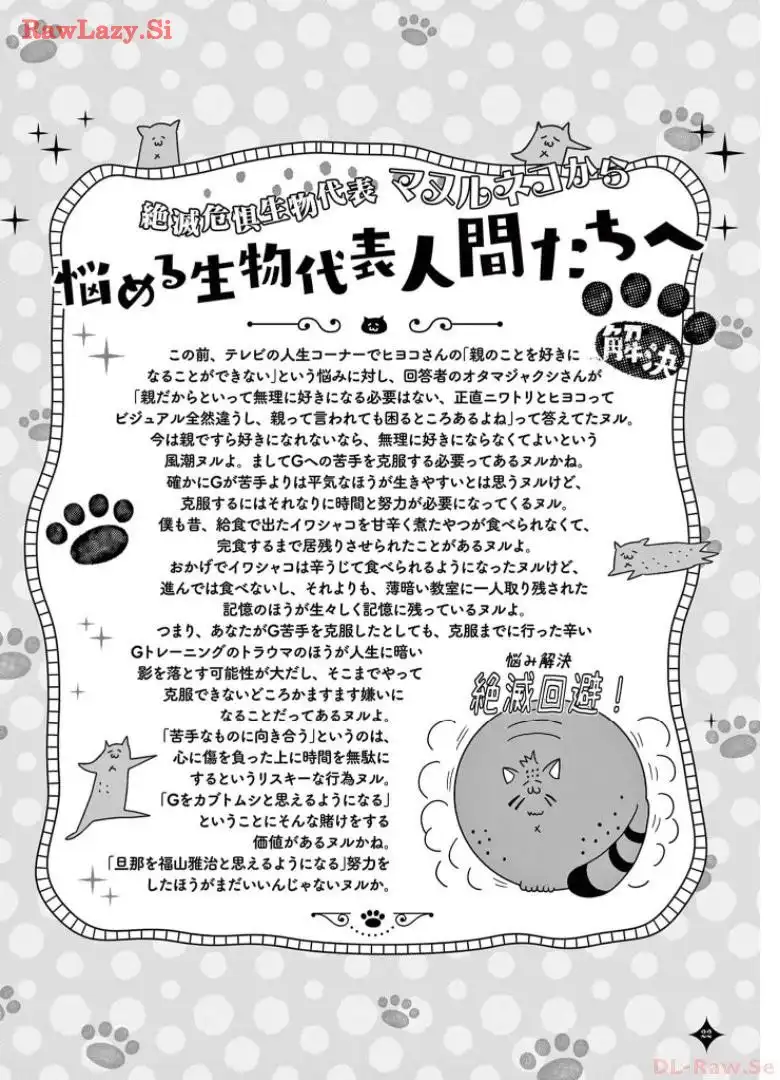 RawLazy.Si
絶滅危惧生物代表 マヌルネコから
悩める生物代表人間たちへ
解決
この前、テレビの人生コーナーでヒヨコさんの「親のことを好きに
なることができない」という悩みに対し、回答者のオタマジャクシさんが
「親だからといって無理に好きになる必要はない、正直ニワトリとヒヨコって
ビジュアル全然違うし、親って言われても困るところあるよね」って答えてたヌル。
今は親ですら好きになれないなら、無理に好きにならなくてよいという
風潮ヌルよ。ましてGへの苦手を克服する必要ってあるヌルかね。
確かにGが苦手よりは平気なほうが生きやすいとは思うヌルけど、
克服するにはそれなりに時間と努力が必要になってくるヌル。
僕も昔、給食で出たイワシャコを甘辛く煮たやつが食べられなくて、
完食するまで居残りさせられたことがあるヌルよ。
おかげでイワシャコは辛うじて食べられるようになったヌルけど、
進んでは食べないし、それよりも、薄暗い教室に一人取り残された
記憶のほうが生々しく記憶に残っているヌルよ。
つまり、あなたがG苦手を克服したとしても、克服までに行った辛い
Gトレーニングのトラウマのほうが人生に暗い
影を落とす可能性が大だし、そこまでやって
克服できないどころかますます嫌いに
なることだってあるヌルよ。
「苦手なものに向き合う」というのは、
心に傷を負った上に時間を無駄に
するというリスキーな行為ヌル。
「Gをカブトムシと思えるようになる」
ということにそんな賭けをする
価値があるヌルかね。
「旦那を福山雅治と思えるようになる」努力を
したほうがまだいいんじゃないヌルか。
悩み解決
絶滅回避！
22
DL-Raw.Se